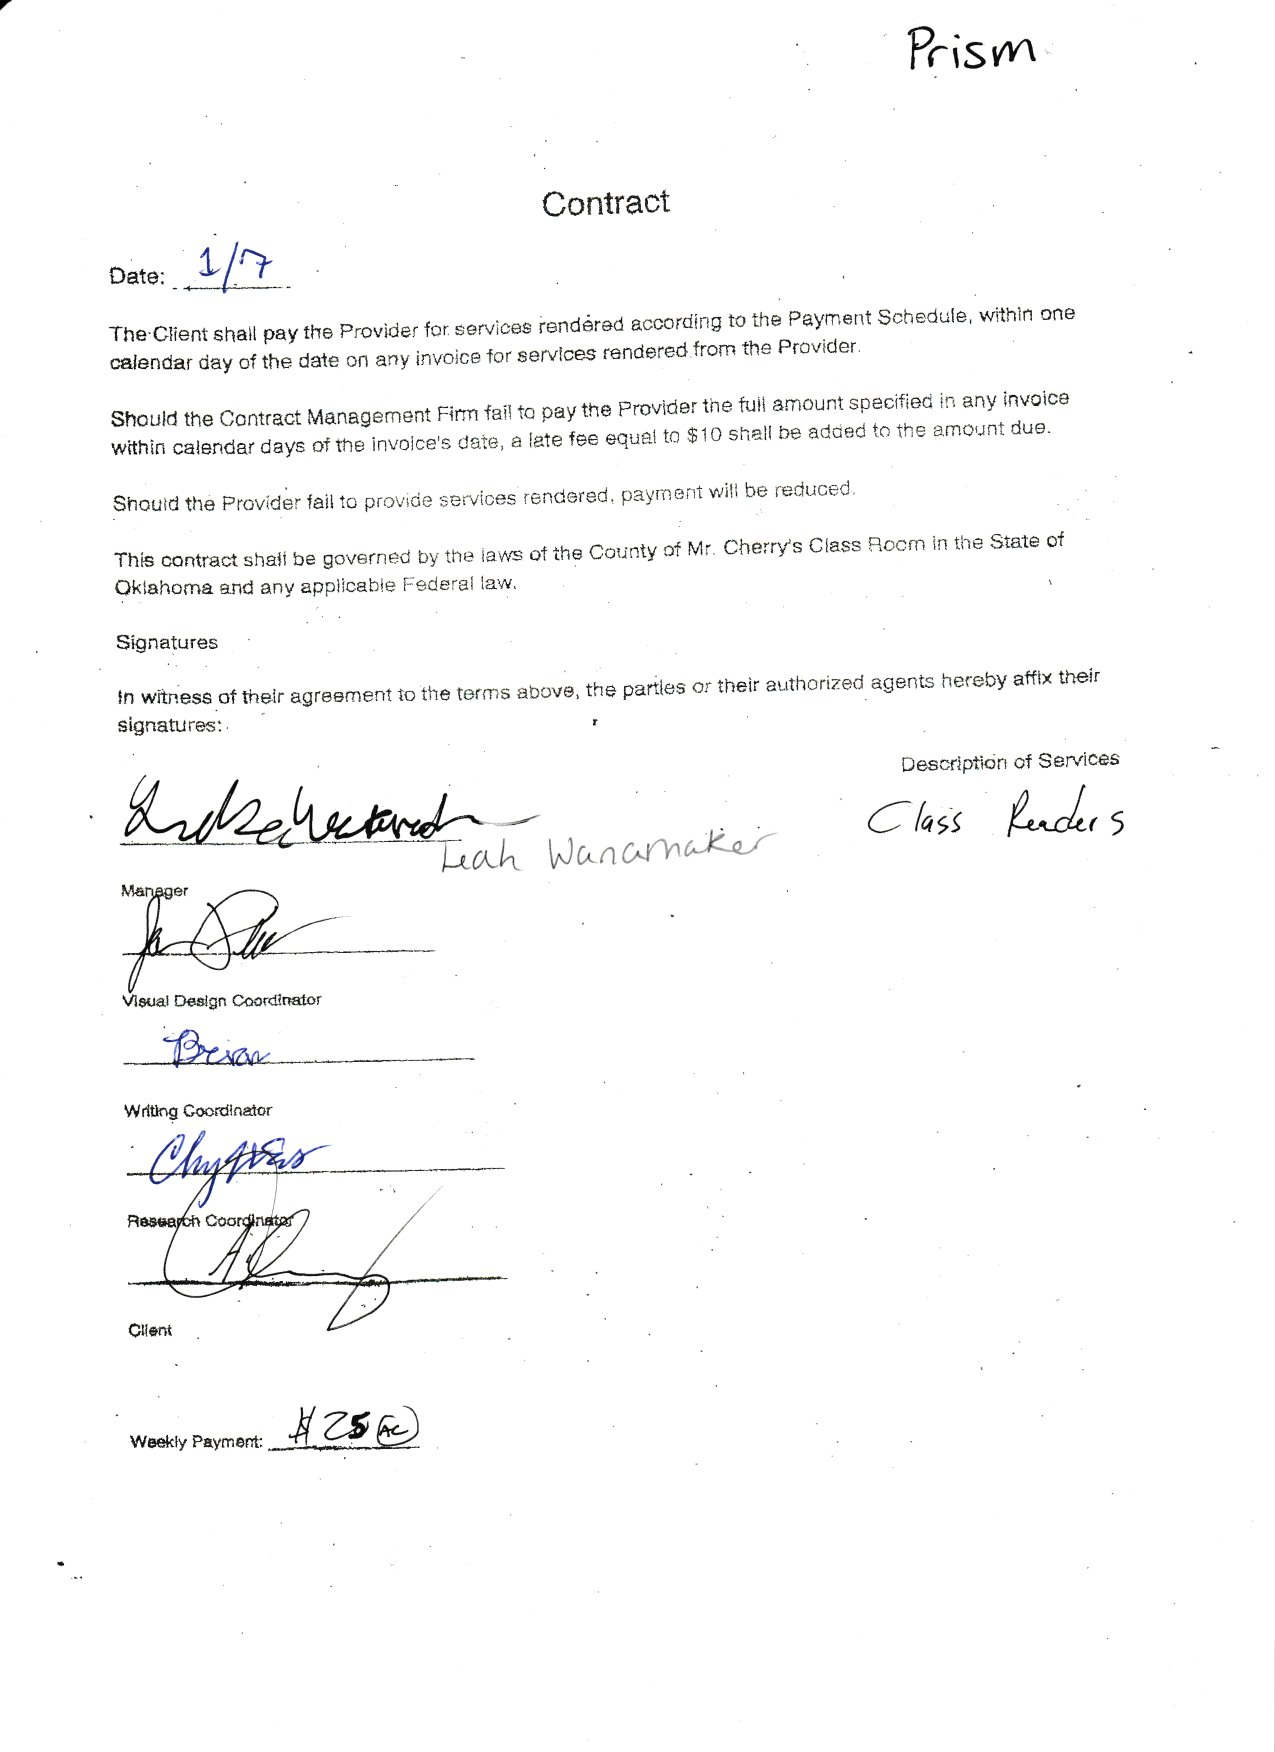 Prism
Contract
Date: 1/7
The Client shall pay the Provider for services rendered according to the Payment Schedule, within one
calendar day of the date on any invoice for services rendered from the Provider.
Should the Contract Management Firm fail to pay the Provider the full amount specified in any invoice
within calendar days of the invoice's date, a late fee equal to $10 shall be added to the amount due.
Should the Provider fail to provide services rendered, payment will be reduced.
This contract shall be governed by the laws of the County of Mr. Cherry's Class Room in the State of
Oklahoma and any applicable Federal law.
Signatures
In witness of their agreement to the terms above, the parties or their authorized agents hereby affix their
signatures:
Description of Services
Class Readers
Leah Wanamaker
Manager
Visual Design Coordinator
Brian
Writing Coordinator
Research Coordinator
Client
Weekly Payment: $25 AC